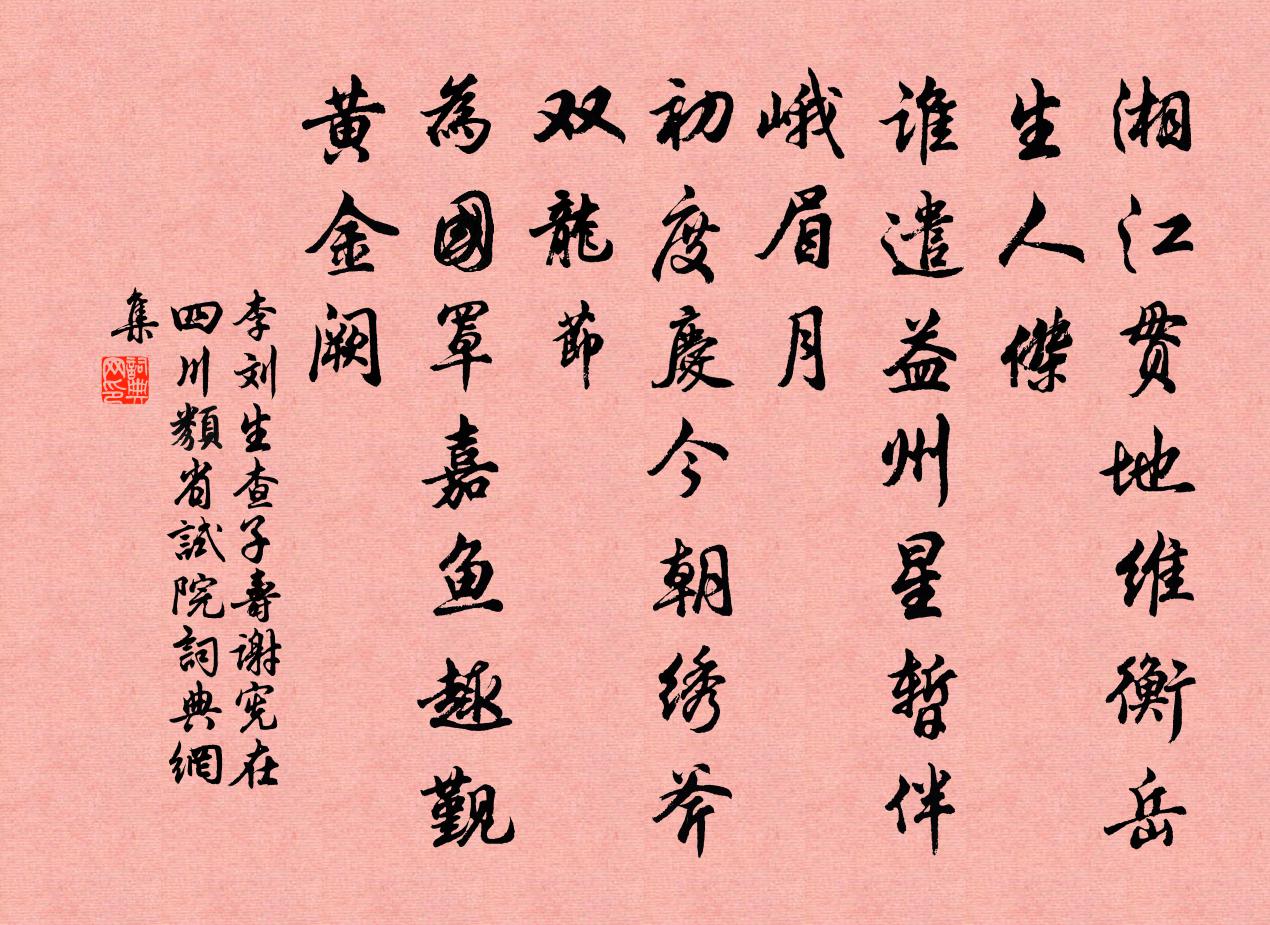 湘江贯地维衡岳
生人傑
谁遣益州星暂伴
峨眉月
初度慶今朝绣斧
双龍節
為國罩嘉鱼趣觐
黄金阙
李刘生查子壽谢宪在
四川類省試院詞典網
集
詞典网印